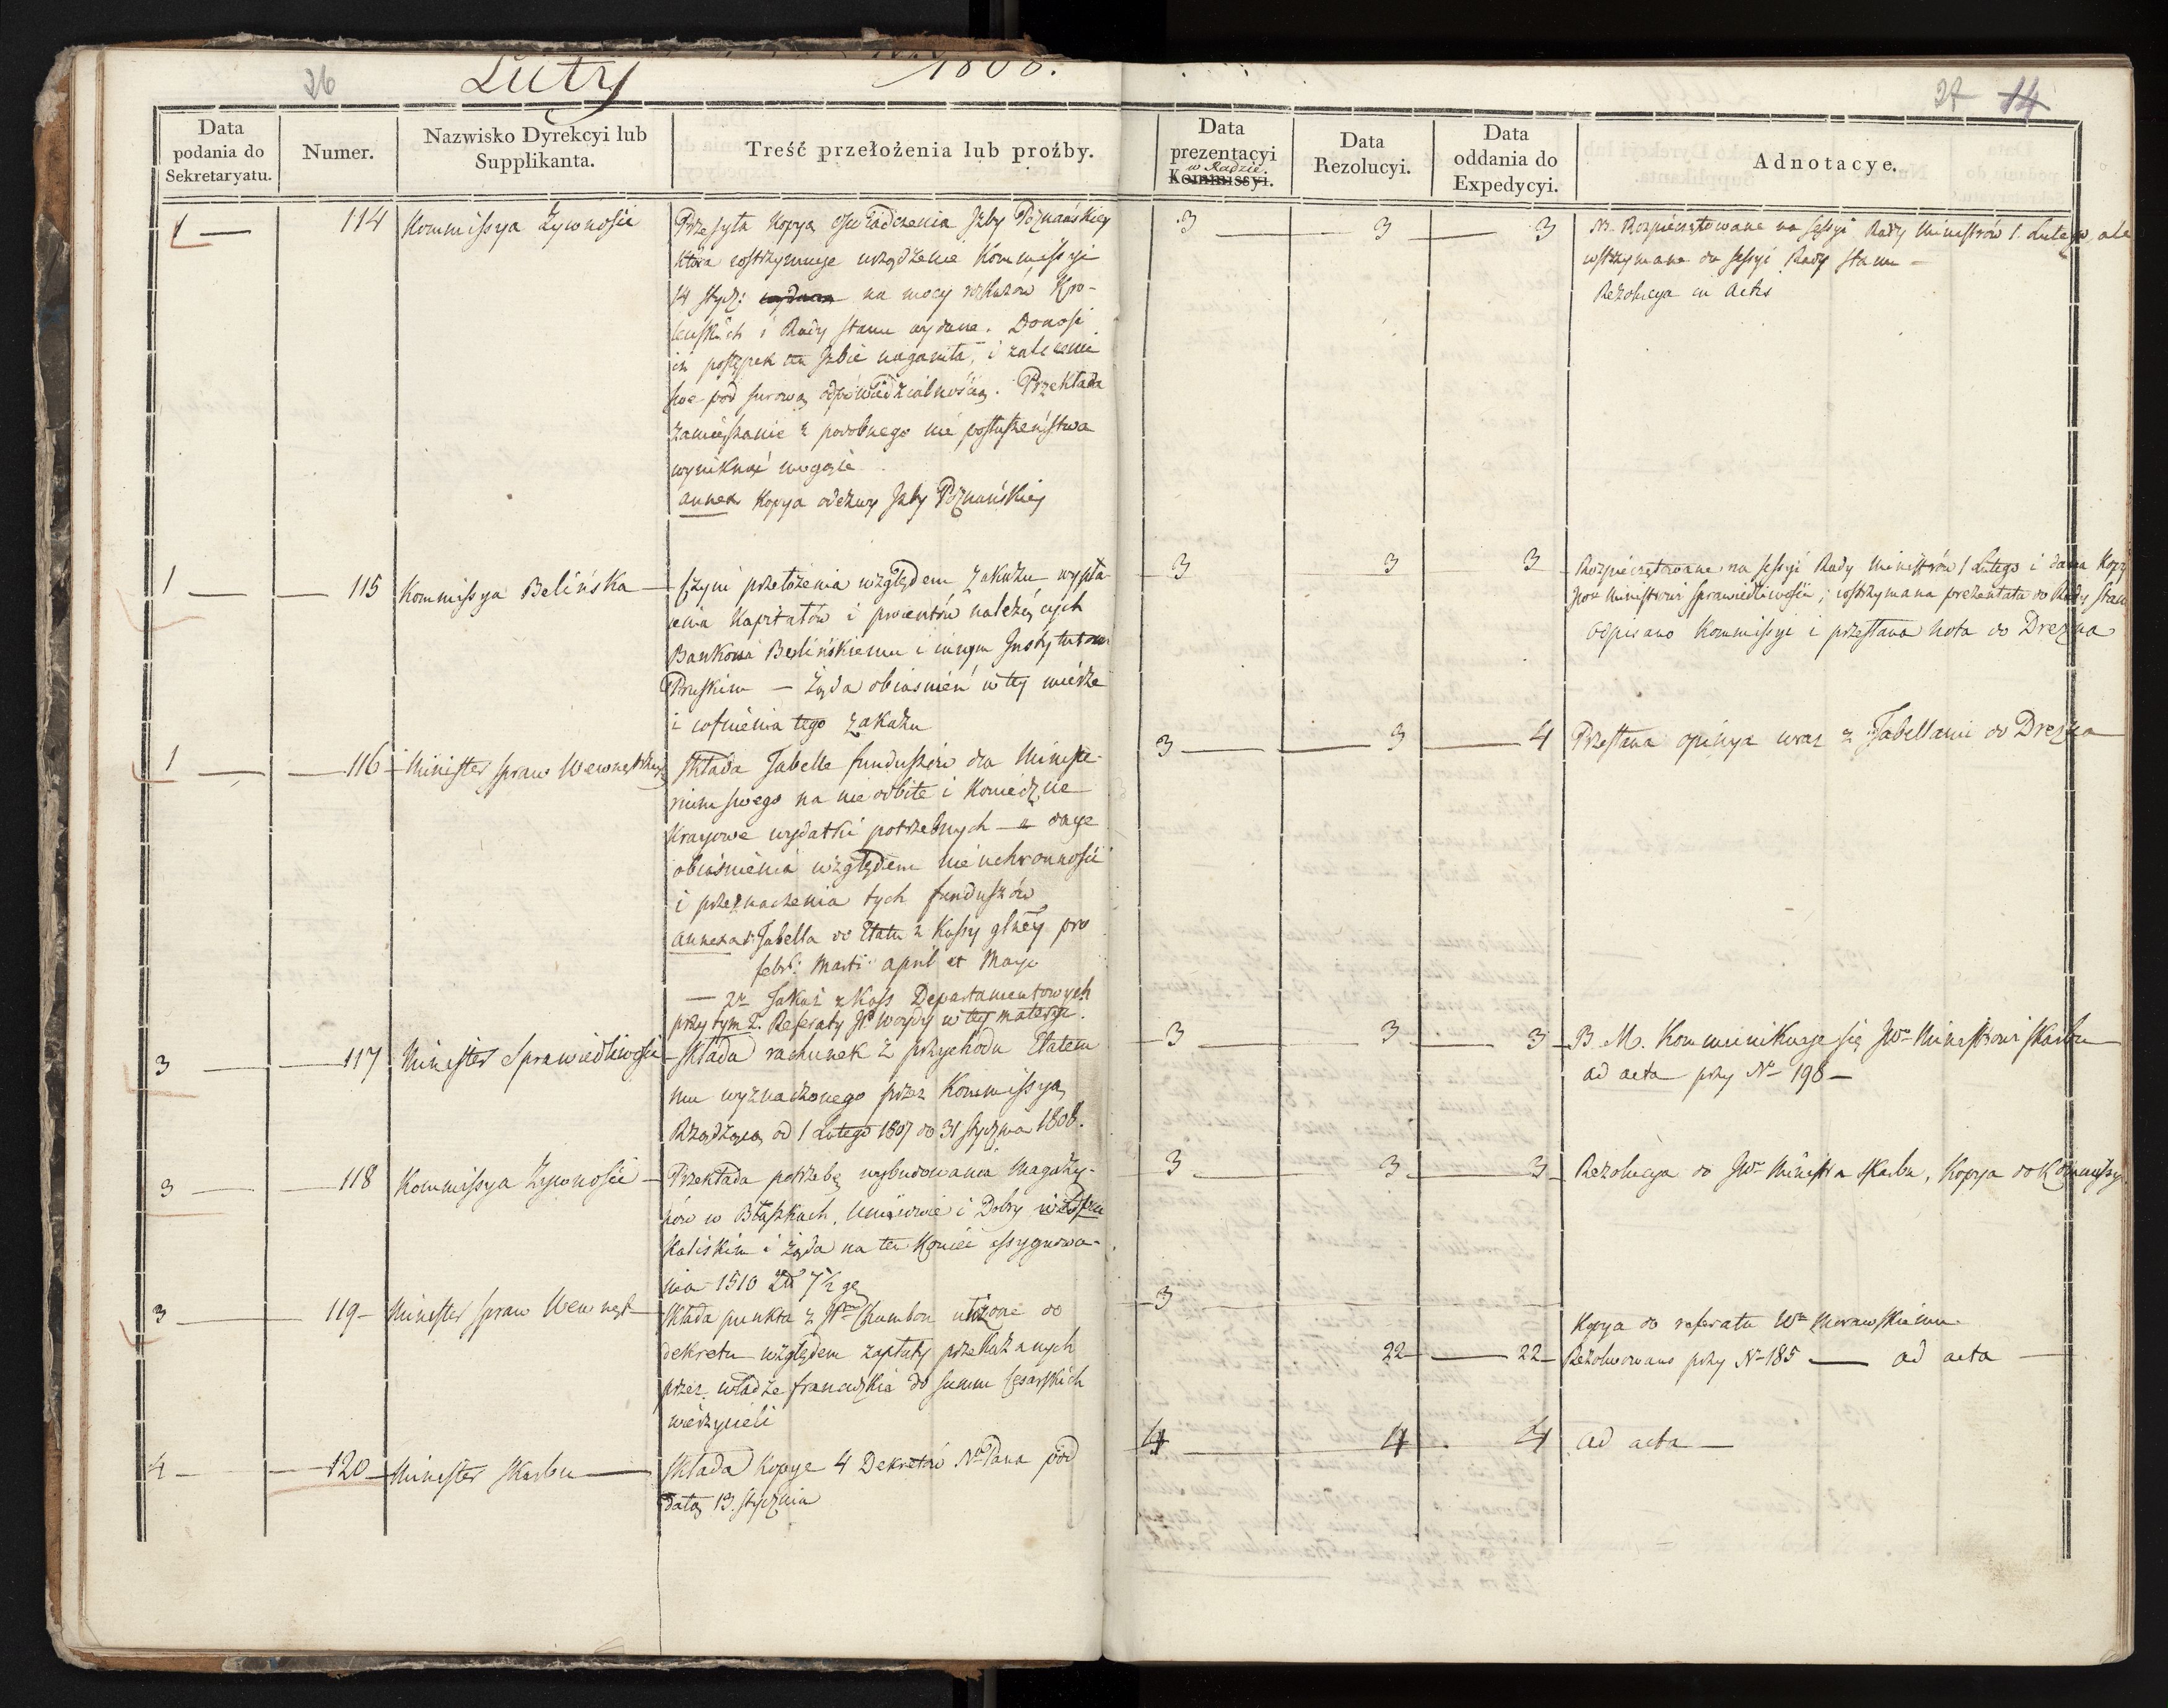 26
Luty 1808.
27 14
Data podania do Sekretaryatu.
Numer.
Nazwisko Dyrekcyi lub Supplikanta.
Treść przełożenia lub proźby.
Data prezentacyi w Radzie. Kommissyi.
Data Rezolucyi.
Data oddania do Expedycyi.
Adnotacye.
1 — 114 Kommissya Żywnośći
Przesyła kopyą oświadczenia Izby Poznańskiey
która wstrzymuie urządzenie Kommissyi
14 stycz: wydane na mocy rozkazów Kro-
lewskich i Rady stanu wydane. Donosi
iż postępek ten Izbie naganiła, i zaleciła
pod surową odpowiedzialnością. Przekłada
zamięszanie z podobnego nie posłuszeństwa
wyniknąć mogące
annex kopya odezwy Izby Poznańskiey
3 — 3 — 3
Rozpieczętowane na sessyi Rady Ministrów 1. Lutego, ale
wstrzymane do sessyi Rady stanu —
Rezolucya in Actis
1 — 115 Kommissya Belińska —
Czyni przełożenia względem zakazu wypła-
cenia kapitałów i procentów należących
Bankowi Berlińskiemu i innym Instytutom
Pruskim — Żąda obiasnień w tey mierze
i cofnienia tego zakazu
3 3 3
Rozpieczętowane na sessyi Rady Ministrów 1 Lutego i dana kopia
Ministrowi Sprawiedliwości; wstrzymana prezentata do Rady Stanu
Odpisano Kommissyi i przesłana Nota do Drezna
1 — 116 — Minister spraw Wewnętrznych
składa Tabelle funduszów dla Ministe-
rium swego na nie odbite i konieczne
kraiowe wydatki potrzebnych — daie
obiaśnienia względem nieuchronności
i przeznaczenia tych funduszów
annexa 1 Tabella do Etatu z Kassy głney pro
febr: Marti april et Maye
— 2. Takaż z Kass Departamentowych
przytym 2. Referaty w tey materyi.
3 — 3 — 4
Przesłana opinya wraz z Tabellami do Drezna
3 — 117 Minister Sprawiedliwości —
składa rachunek z przychodu Etatem
mu wyznaczonego przez Kommissyą
Rządzącą od 1 Lutego 1807 do 31 stycznia 1808.
3 — 3 — 3
B. M. Kommunikuje się JW Ministrowi skarbu
ad acta przy No 198 —
3 — 118 Kommissya Żywnośći —
Przekłada potrzebę wybudowania Magazy-
nów w Błaszkach, Uniewie i Dobry
Kaliskim i żąda na ten koniec assygnowa-
nia 1510 Zł 7½ gr
3 — 3 — 3
Rezolucya do JW Ministra skarbu, Kopya do Kommissyi
3 — 119 — Minister spraw Wewnęt —
składa punkta z Chambon ułożone do
dekretu względem zapłaty przekazanych
przez władze francuzkie do summ Cesarskich
wierzycieli
3 — 22 — 22
Kopya do referatu W Morawskiemu
Rezolwowano przy No 185 — ad acta —
4 — 120 — Minister skarbu —
składa kopye 4 Dekretów N Pana pod
datą 13. stycznia
4 — 4 . 4
ad acta —